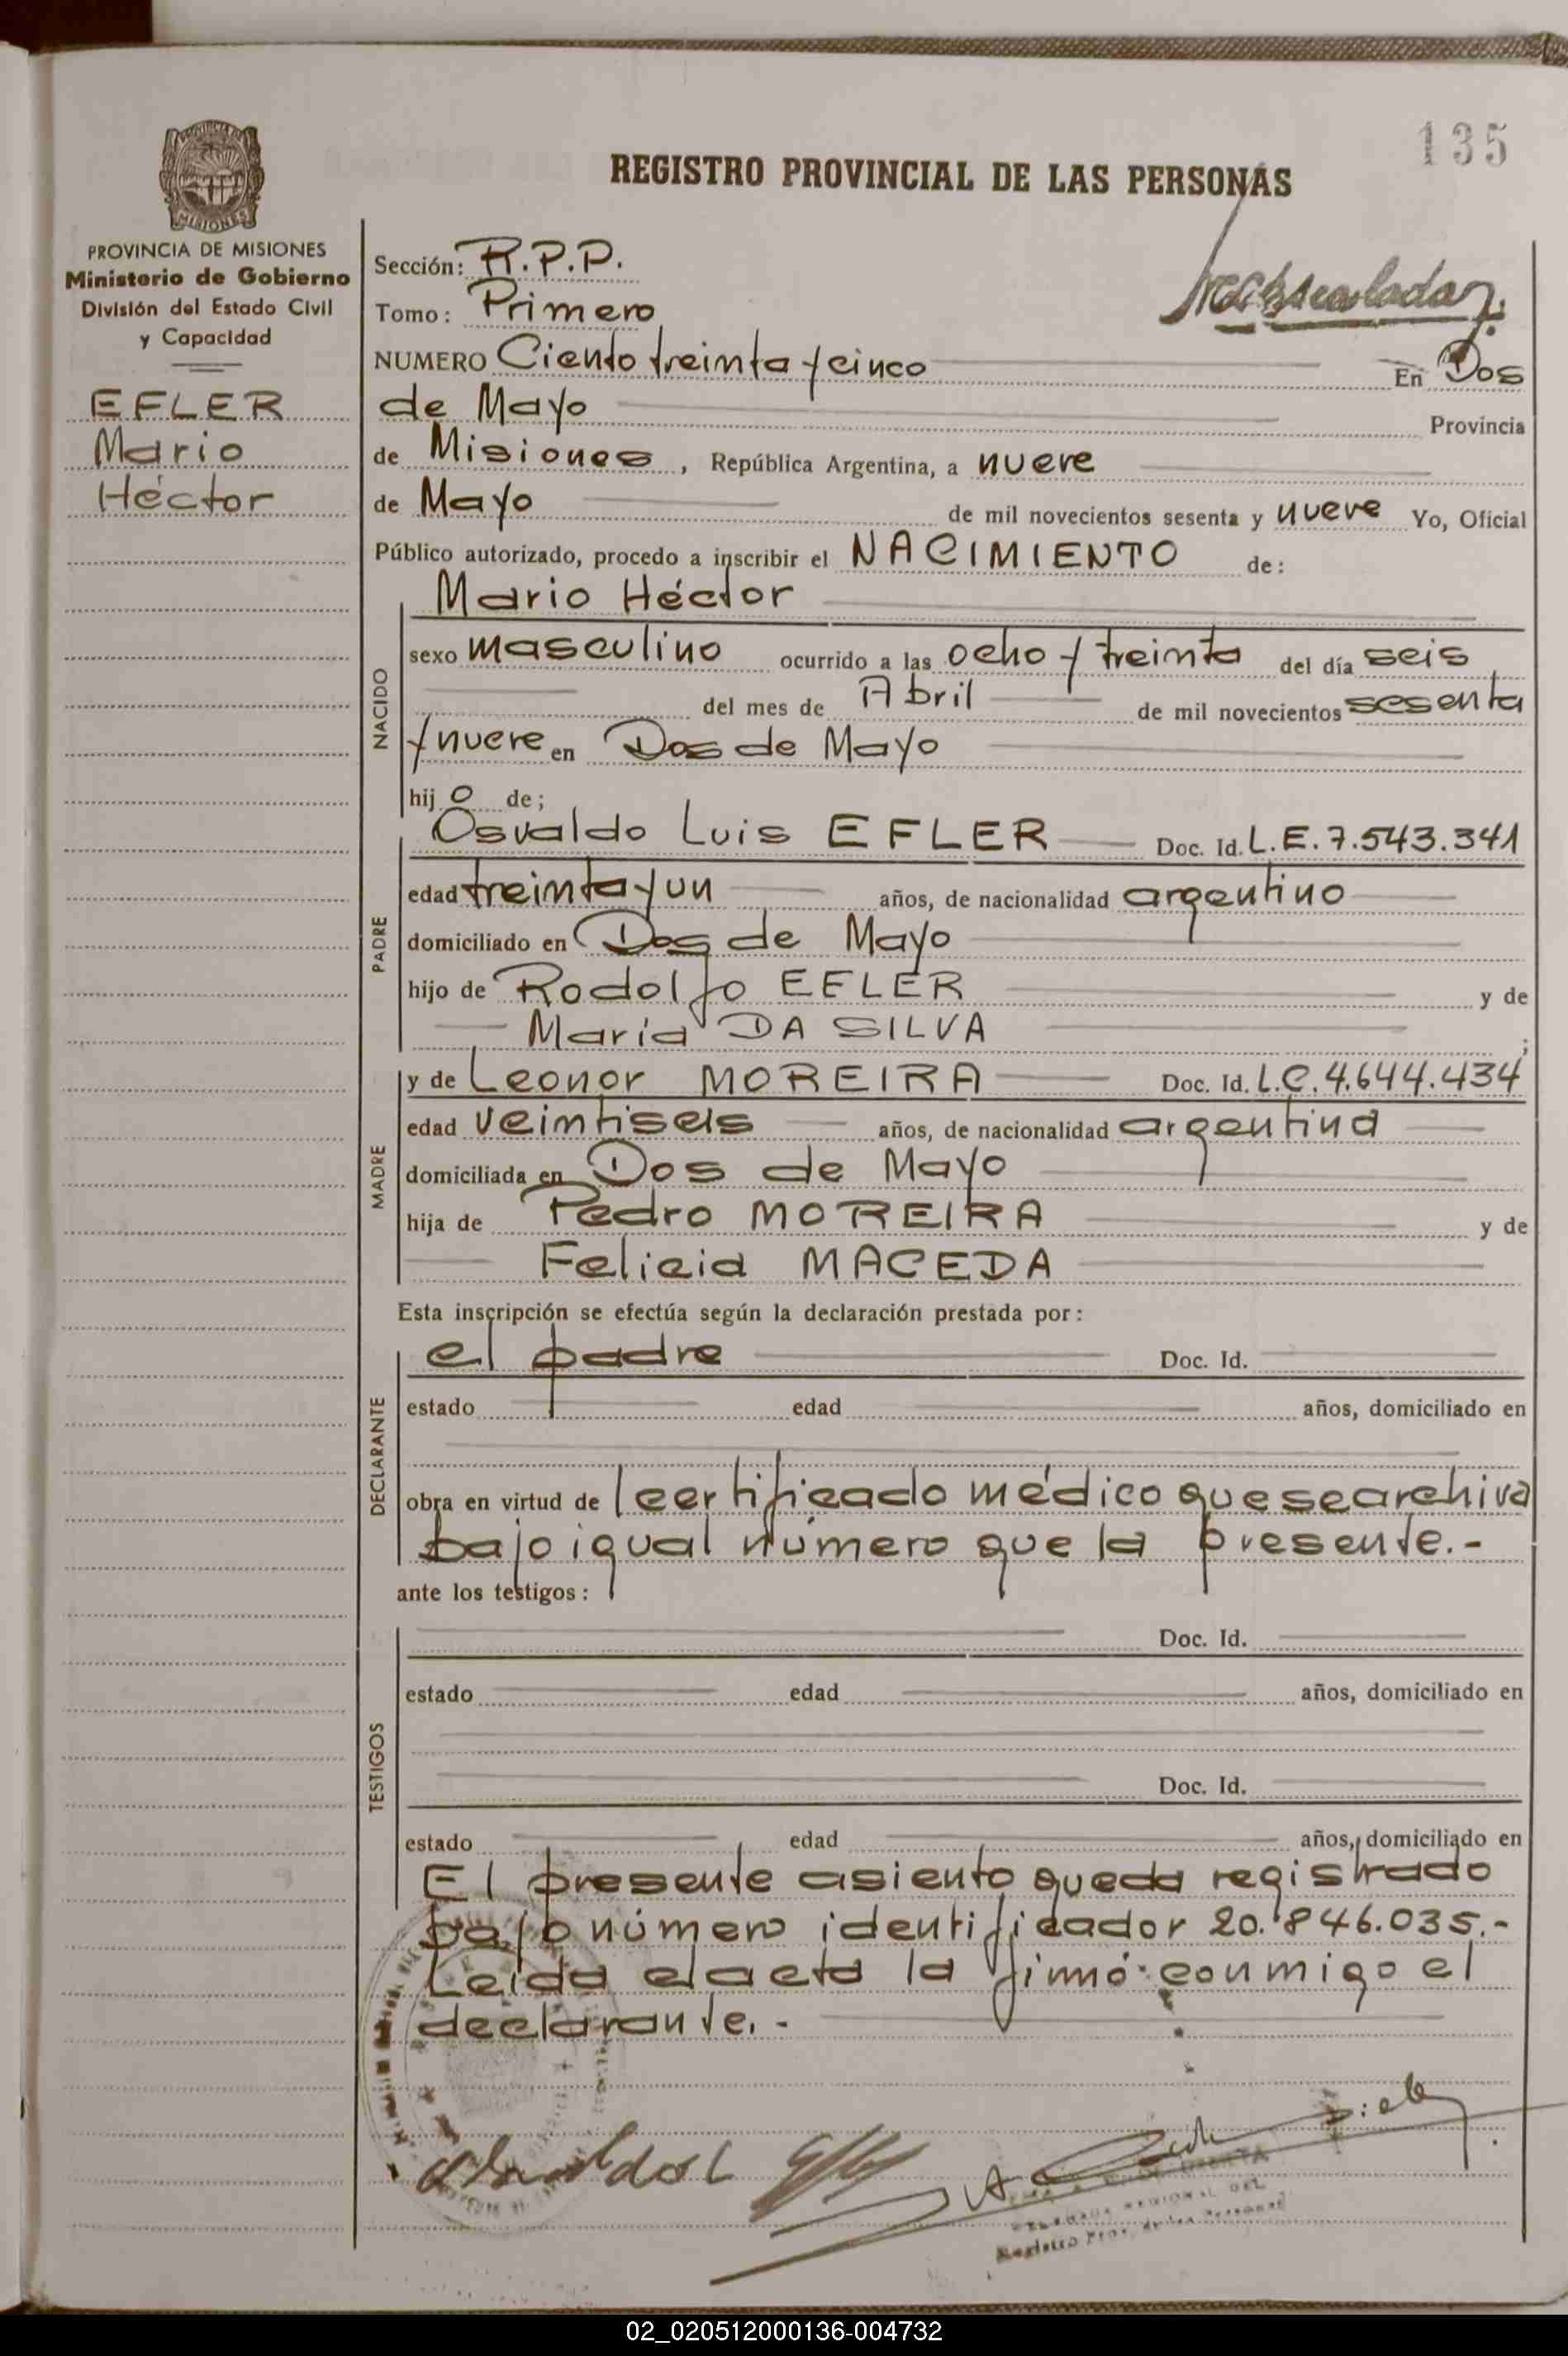 135
REGISTRO PROVINCIAL DE LAS PERSONAS
PROVINCIA DE MISIONES
Ministerio de Gobierno
División del Estado Civil
y Capacidad
EFLER
Mario
Héctor
Sección: R.P.P.
Tomo: Primero
NUMERO Ciento treinta y cinco En Dos
de Mayo Provincia
de Misiones, República Argentina, a nueve
de Mayo de mil novecientos sesenta y nueve Yo, Oficial
Público autorizado, procedo a inscribir el NACIMIENTO de:
NACIDO
Mario Héctor
sexo masculino ocurrido a las ocho y treinta del día seis
del mes de Abril de mil novecientos sesenta
y nueve en Dos de Mayo
hijo de;
PADRE
Osvaldo Luis EFLER Doc. Id. L.E. 7.543.341
edad treinta y un años, de nacionalidad argentino
domiciliado en Dos de Mayo
hijo de Rodolfo EFLER y de
María DA SILVA;
MADRE
y de Leonor MOREIRA Doc. Id. L.C. 4.644.434
edad veintiseis años, de nacionalidad argentina
domiciliada en Dos de Mayo
hija de Pedro MOREIRA y de
Felicia MACEDA
Esta inscripción se efectúa según la declaración prestada por:
DECLARANTE
el padre Doc. Id.
estado edad años, domiciliado en
obra en virtud de certificado médico que se archiva
bajo igual número que la presente.-
ante los testigos:
TESTIGOS
Doc. Id.
estado edad años, domiciliado en
Doc. Id.
estado edad años, domiciliado en
El presente asiento queda registrado
bajo número identificador 20.846.035.-
Leida el acta la firmó conmigo el
declarante.-
Osvaldo L
REGIONAL DEL
Registro Prov. de las Personas
02_020512000136-004732